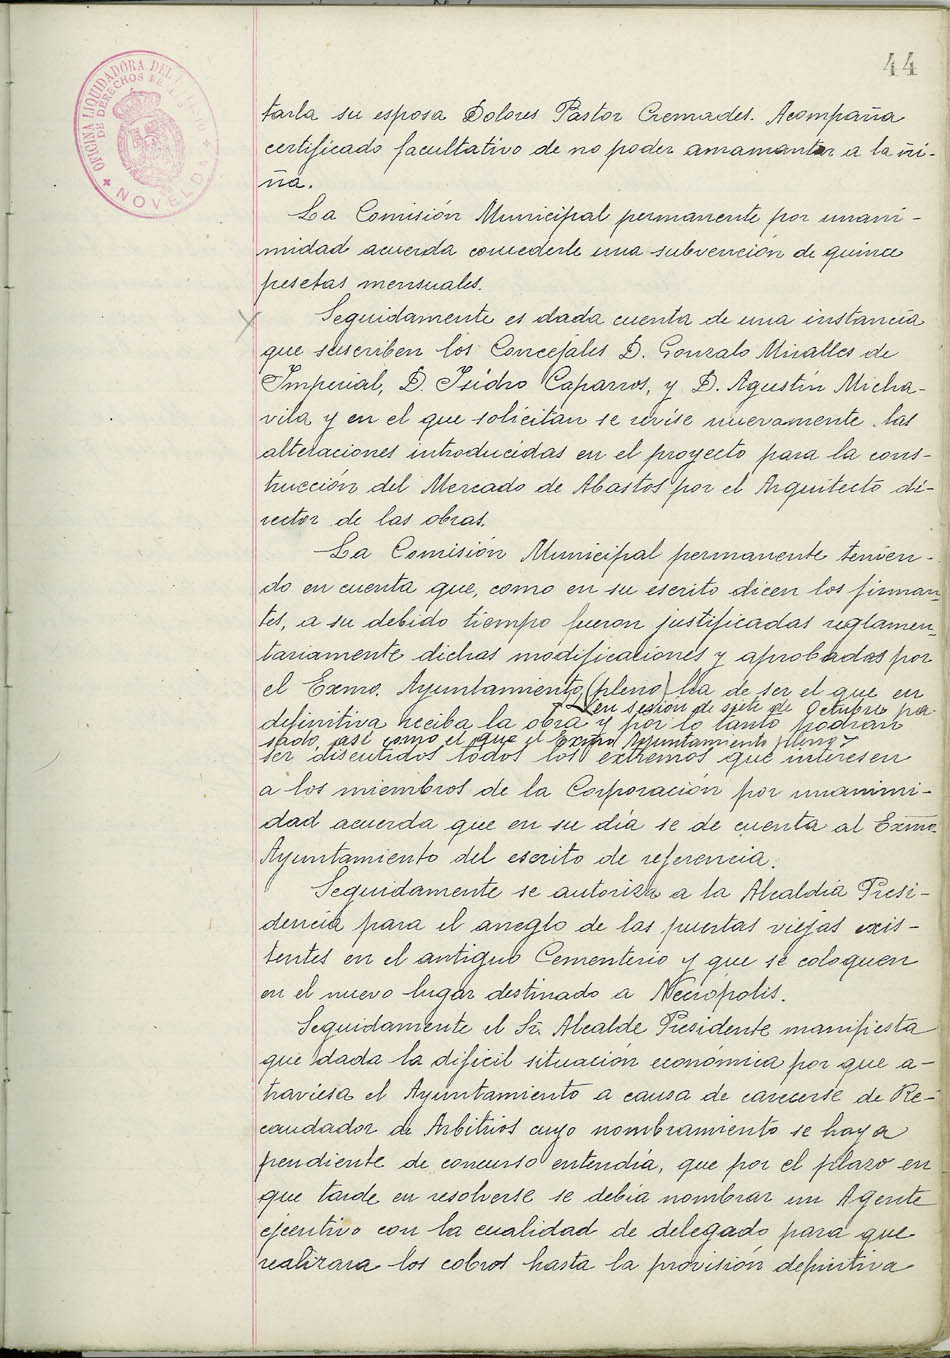 44
OFICINA LIQUIDADORA DEL
DE DERECHOS RE
NOVELD
tarla su esposa Dolores Pastor Cremades. Acompaña
certificado facultativo de no poder amamantar a la ñi-
ña.
La Comisión Municipal permanente por unani-
midad acuerda concederle una subvención de quince
pesetas mensuales.
Seguidamente es dada cuenta de una instancia
que suscriben los Concejales D. Gonzalo Miralles de
Imperial, D. Isidro Caparros, y D. Agustín Micha-
vila y en el que solicitan se revise nuevamente las
alteraciones introducidas en el proyecto para la cons-
trucción del Mercado de Abastos por el Arquitecto di-
rector de las obras.
La Comisión Municipal permanente tenien-
do en cuenta que, como en su escrito dicen los firman-
tes, a su debido tiempo fueron justificadas reglamen-
tariamente dichas modificaciones y aprobadas por
el Exmo. Ayuntamiento (pleno) ha de ser el que en
en sesión de siete de Octubre pa-
definitiva reciba la obra y por lo tanto podrán
sado, así como el que el Exmo Ayuntamiento pleno
ser discutidos todos los extremos que interesen
a los miembros de la Corporación por unanimi-
dad acuerda que en su día se de cuenta al Exmo.
Ayuntamiento del escrito de referencia.
Seguidamente se autoriza a la Alcaldía Presi-
dencia para el arreglo de las puertas viejas exis-
tentes en el antiguo Cementerio y que se coloquen
en el nuevo lugar destinado a Necrópolis.
Seguidamente el Sr. Alcalde Presidente manifiesta
que dada la dificil situación económica por que a-
traviesa el Ayuntamiento a causa de carecerse de Re-
caudador de Arbitrios cuyo nombramiento se haya
pendiente de concurso entendía, que por el plazo en
que tarde en resolverse se debía nombrar un Agente
ejecutivo con la cualidad de delegado para que
realizara los cobros hasta la provisión definitiva